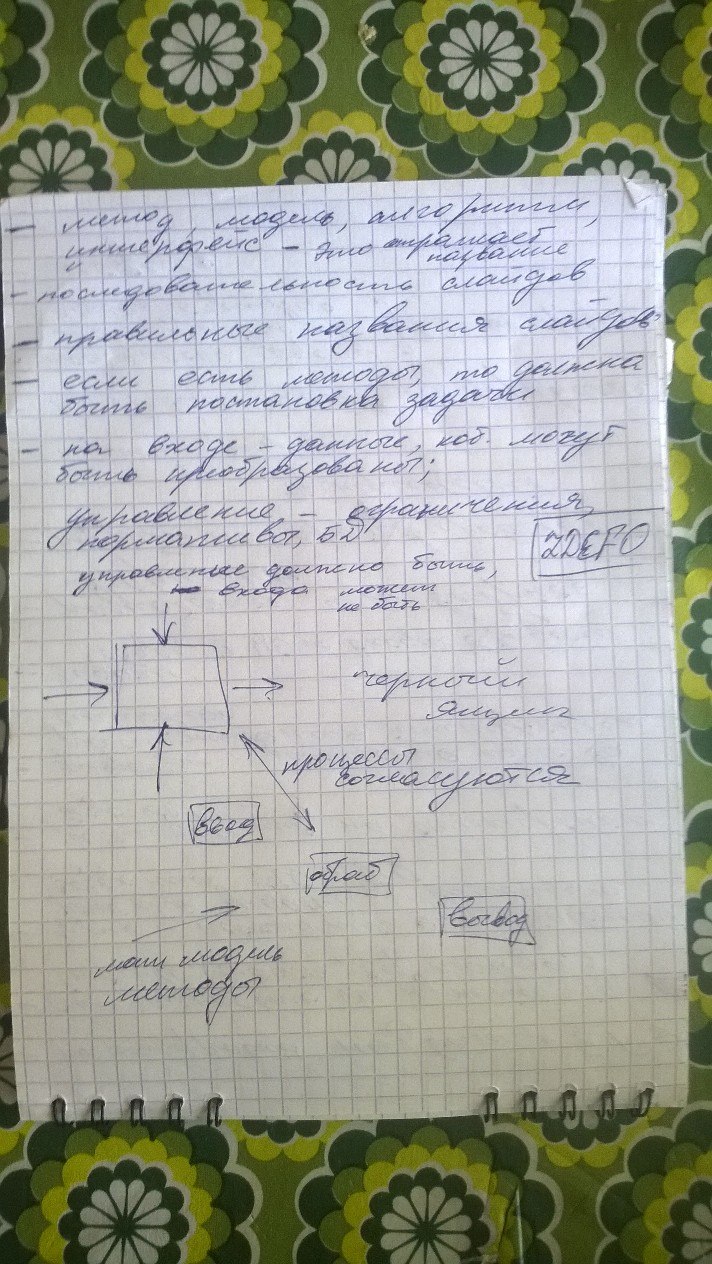 – метод, модель, алгоритм,
интерфейс – это отражает
название
– последовательность слайдов
– правильные названия слайдов
– если есть методы, то должна
быть постановка задачи
– на входе – данные, кот. могут
быть преобразованы;
управление – ограничения,
нормативы, БД
IDEF0
управление должно быть,
– входа может
не быть
черный
ящик
процессы
согласуются
вход
обраб
вывод
мат модель
методы